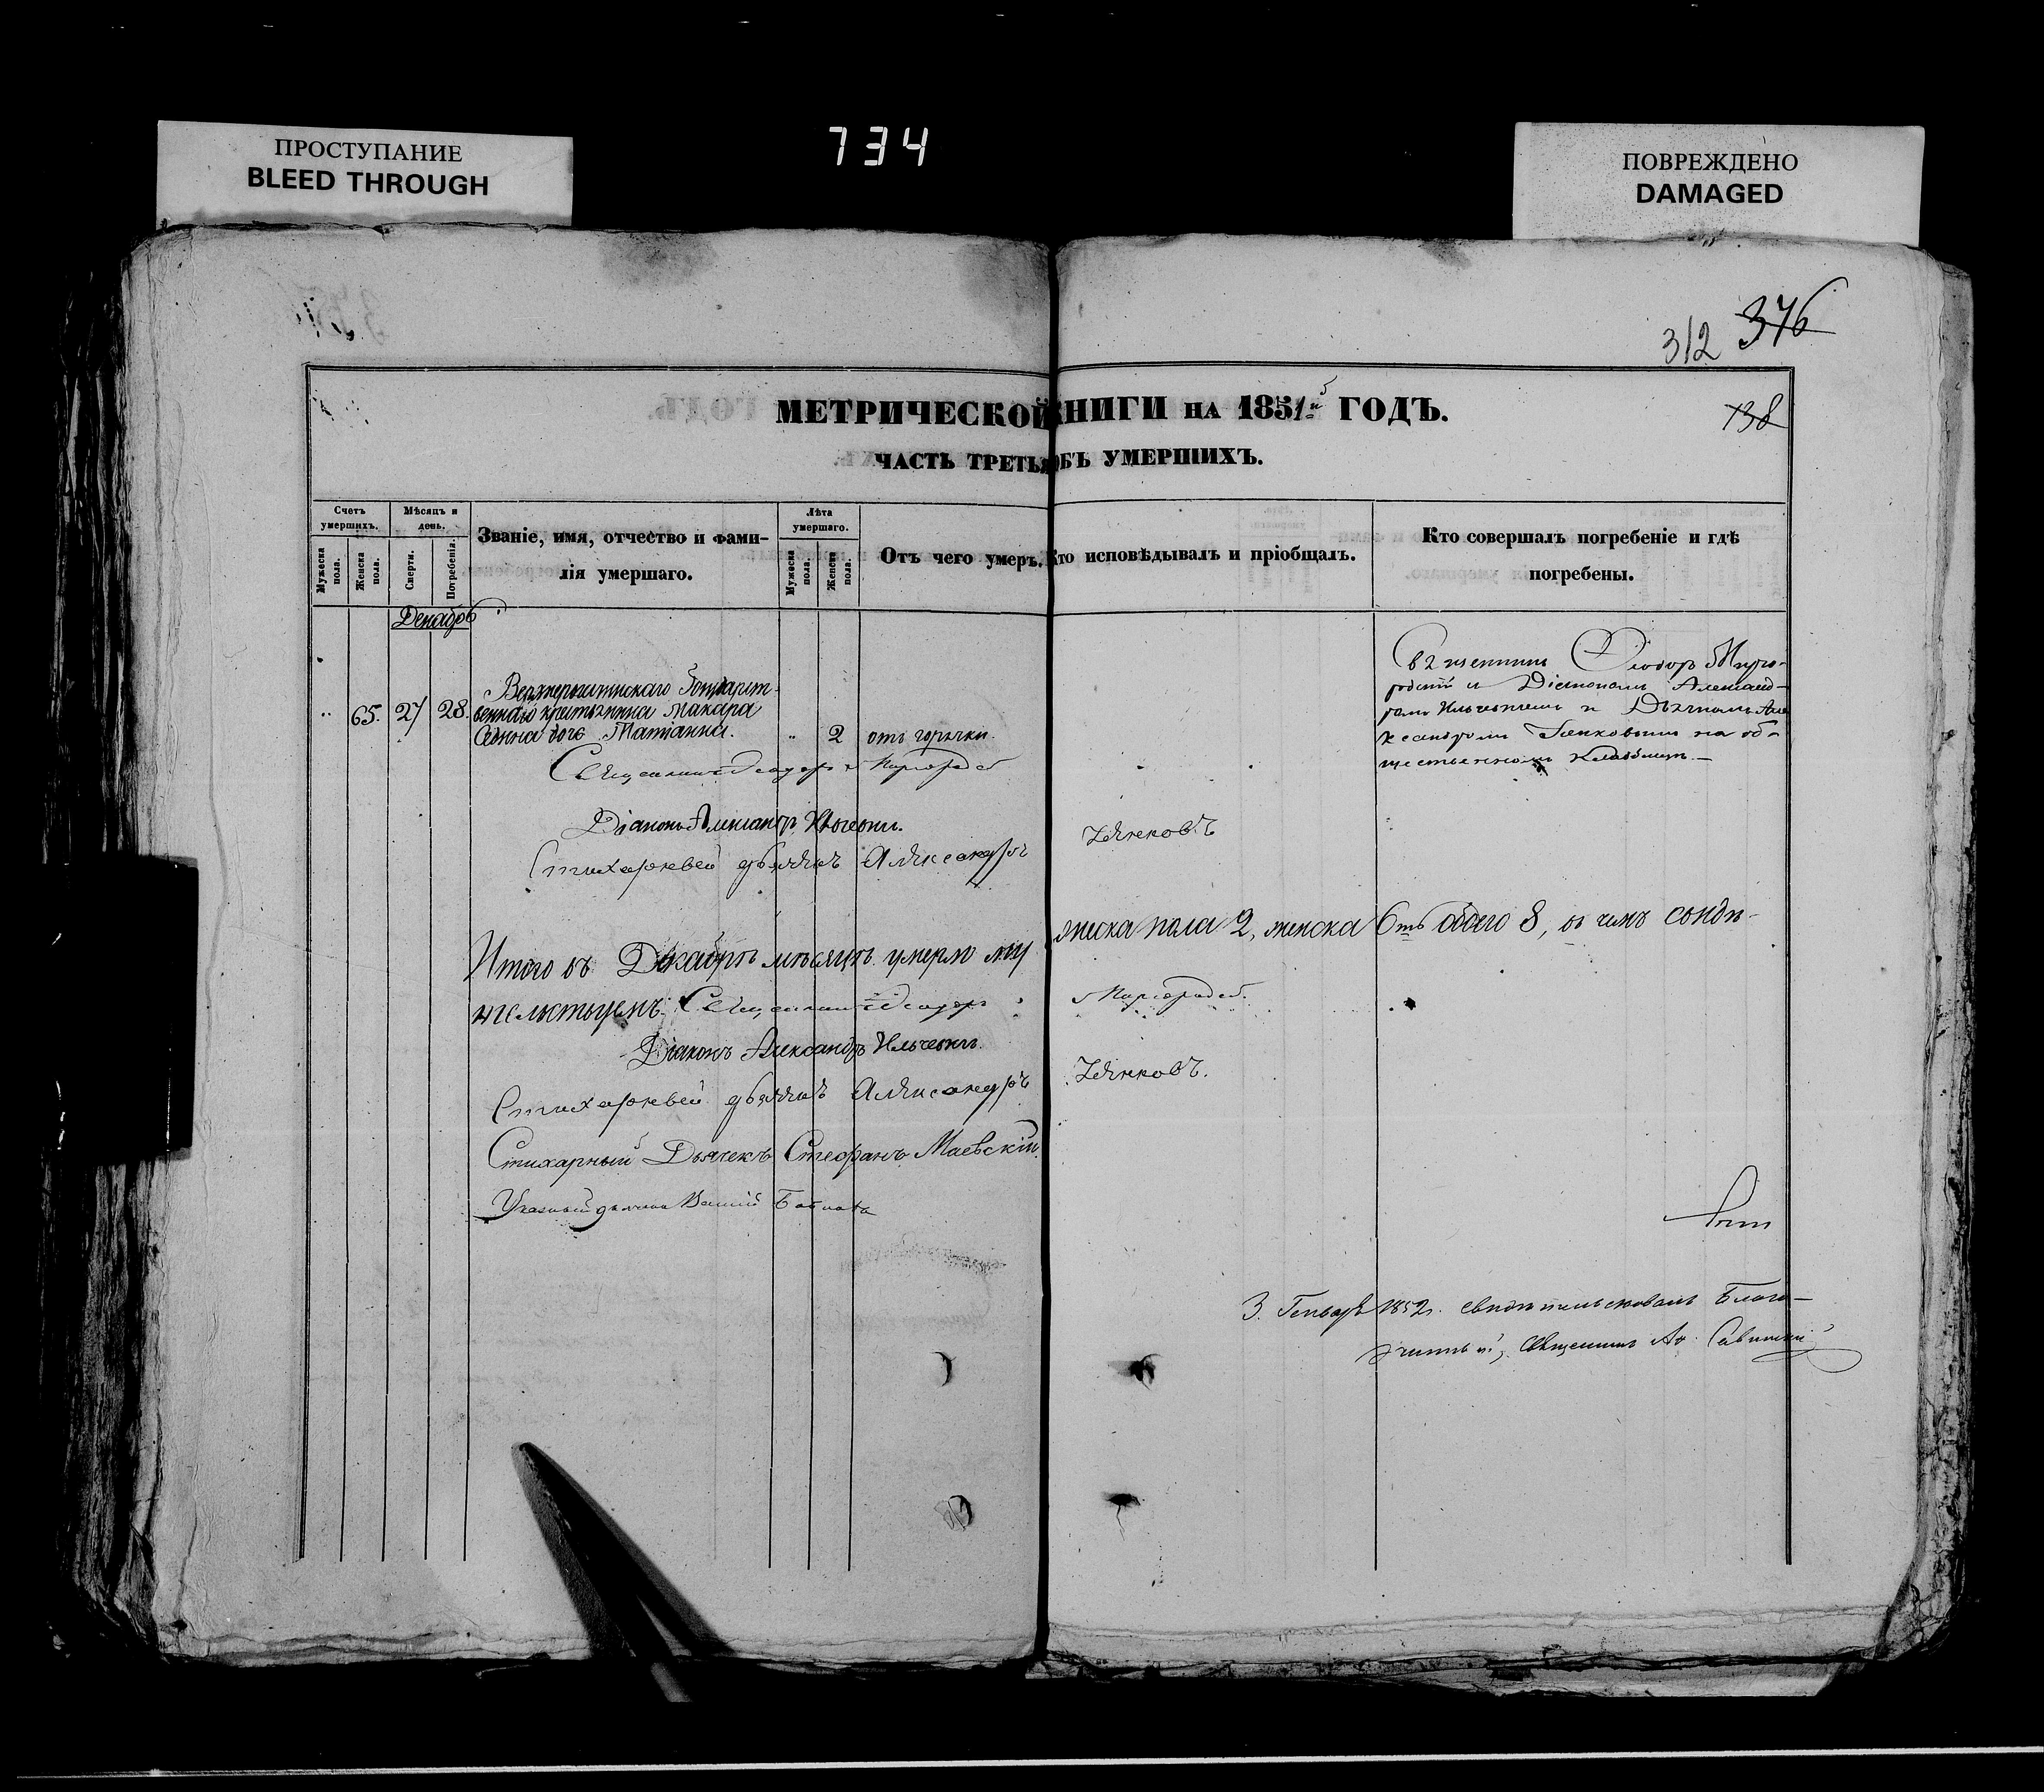 734
ПРОСТУПАНИЕ
BLEED THROUGH
ПОВРЕЖДЕНО
DAMAGED
312 376
МЕТРИЧЕСКОЙ КНИГИ НА 1851й ГОДЪ.
138
ЧАСТЬ ТРЕТЬЯ ОБЪ УМЕРШИХЪ.
Счетъ умершихъ.
Мужеска пола.
Женска пола.
Мѣсяцъ и день.
Смерти.
Погребенія.
Званіе, имя, отчество и фамилія умершаго.
Лѣта умершаго.
Мужеска пола.
Женска пола.
Отъ чего умеръ.
Кто исповѣдывалъ и пріобщалъ.
Кто совершалъ погребеніе и гдѣ погребены.
Декабрь
65. 27 28.
крестьянина Макара
дочь Татіанна. 2 отъ горячки.
Священникъ Ѳеодоръ Мир-
и Діакономъ Александ-
ромъ и Дьячкомъ Але
ксандромъ на об-
щественномъ кладбищѣ.—
Священникъ Ѳеодоръ
Діаконъ Александръ
Стихарный дьячекъ Александръ
Итого въ Декабрѣ мѣсяцѣ умерло му
жеска пола 2, женска 6ть обоего 8, въ чемъ свидѣ-
тельствуемъ: Священникъ Ѳеодоръ
Діаконъ Александръ Ильчевичъ
Стихарный дьячекъ Александръ
Стихарный Дьячекъ Стефанъ Маевскій.
Указный
3. Генваря 1852г. свидѣтельствовалъ Благо-
чинный, Священникъ Савицкій